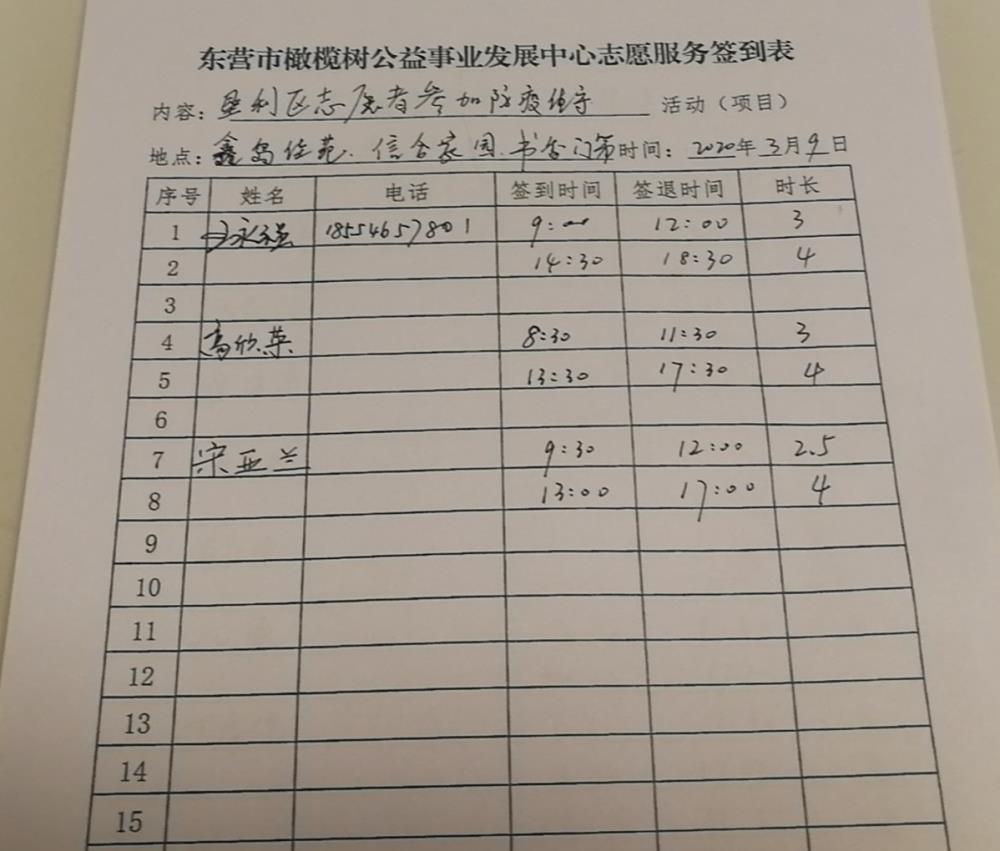 东营市橄榄树公益事业发展中心志愿服务签到表
内容：垦利区志愿者参加防疫值守 活动（项目）
地点：鑫岛佳苑、信合家园、书香门第 时间：2020年3月9日
序号 姓名 电话 签到时间 签退时间 时长
1 永 18554657801 9:00 12:00 3
2 14:30 18:30 4
3
4 高欣英 8:30 11:30 3
5 13:30 17:30 4
6
7 宋亚兰 9:30 12:00 2.5
8 13:00 17:00 4
9
10
11
12
13
14
15